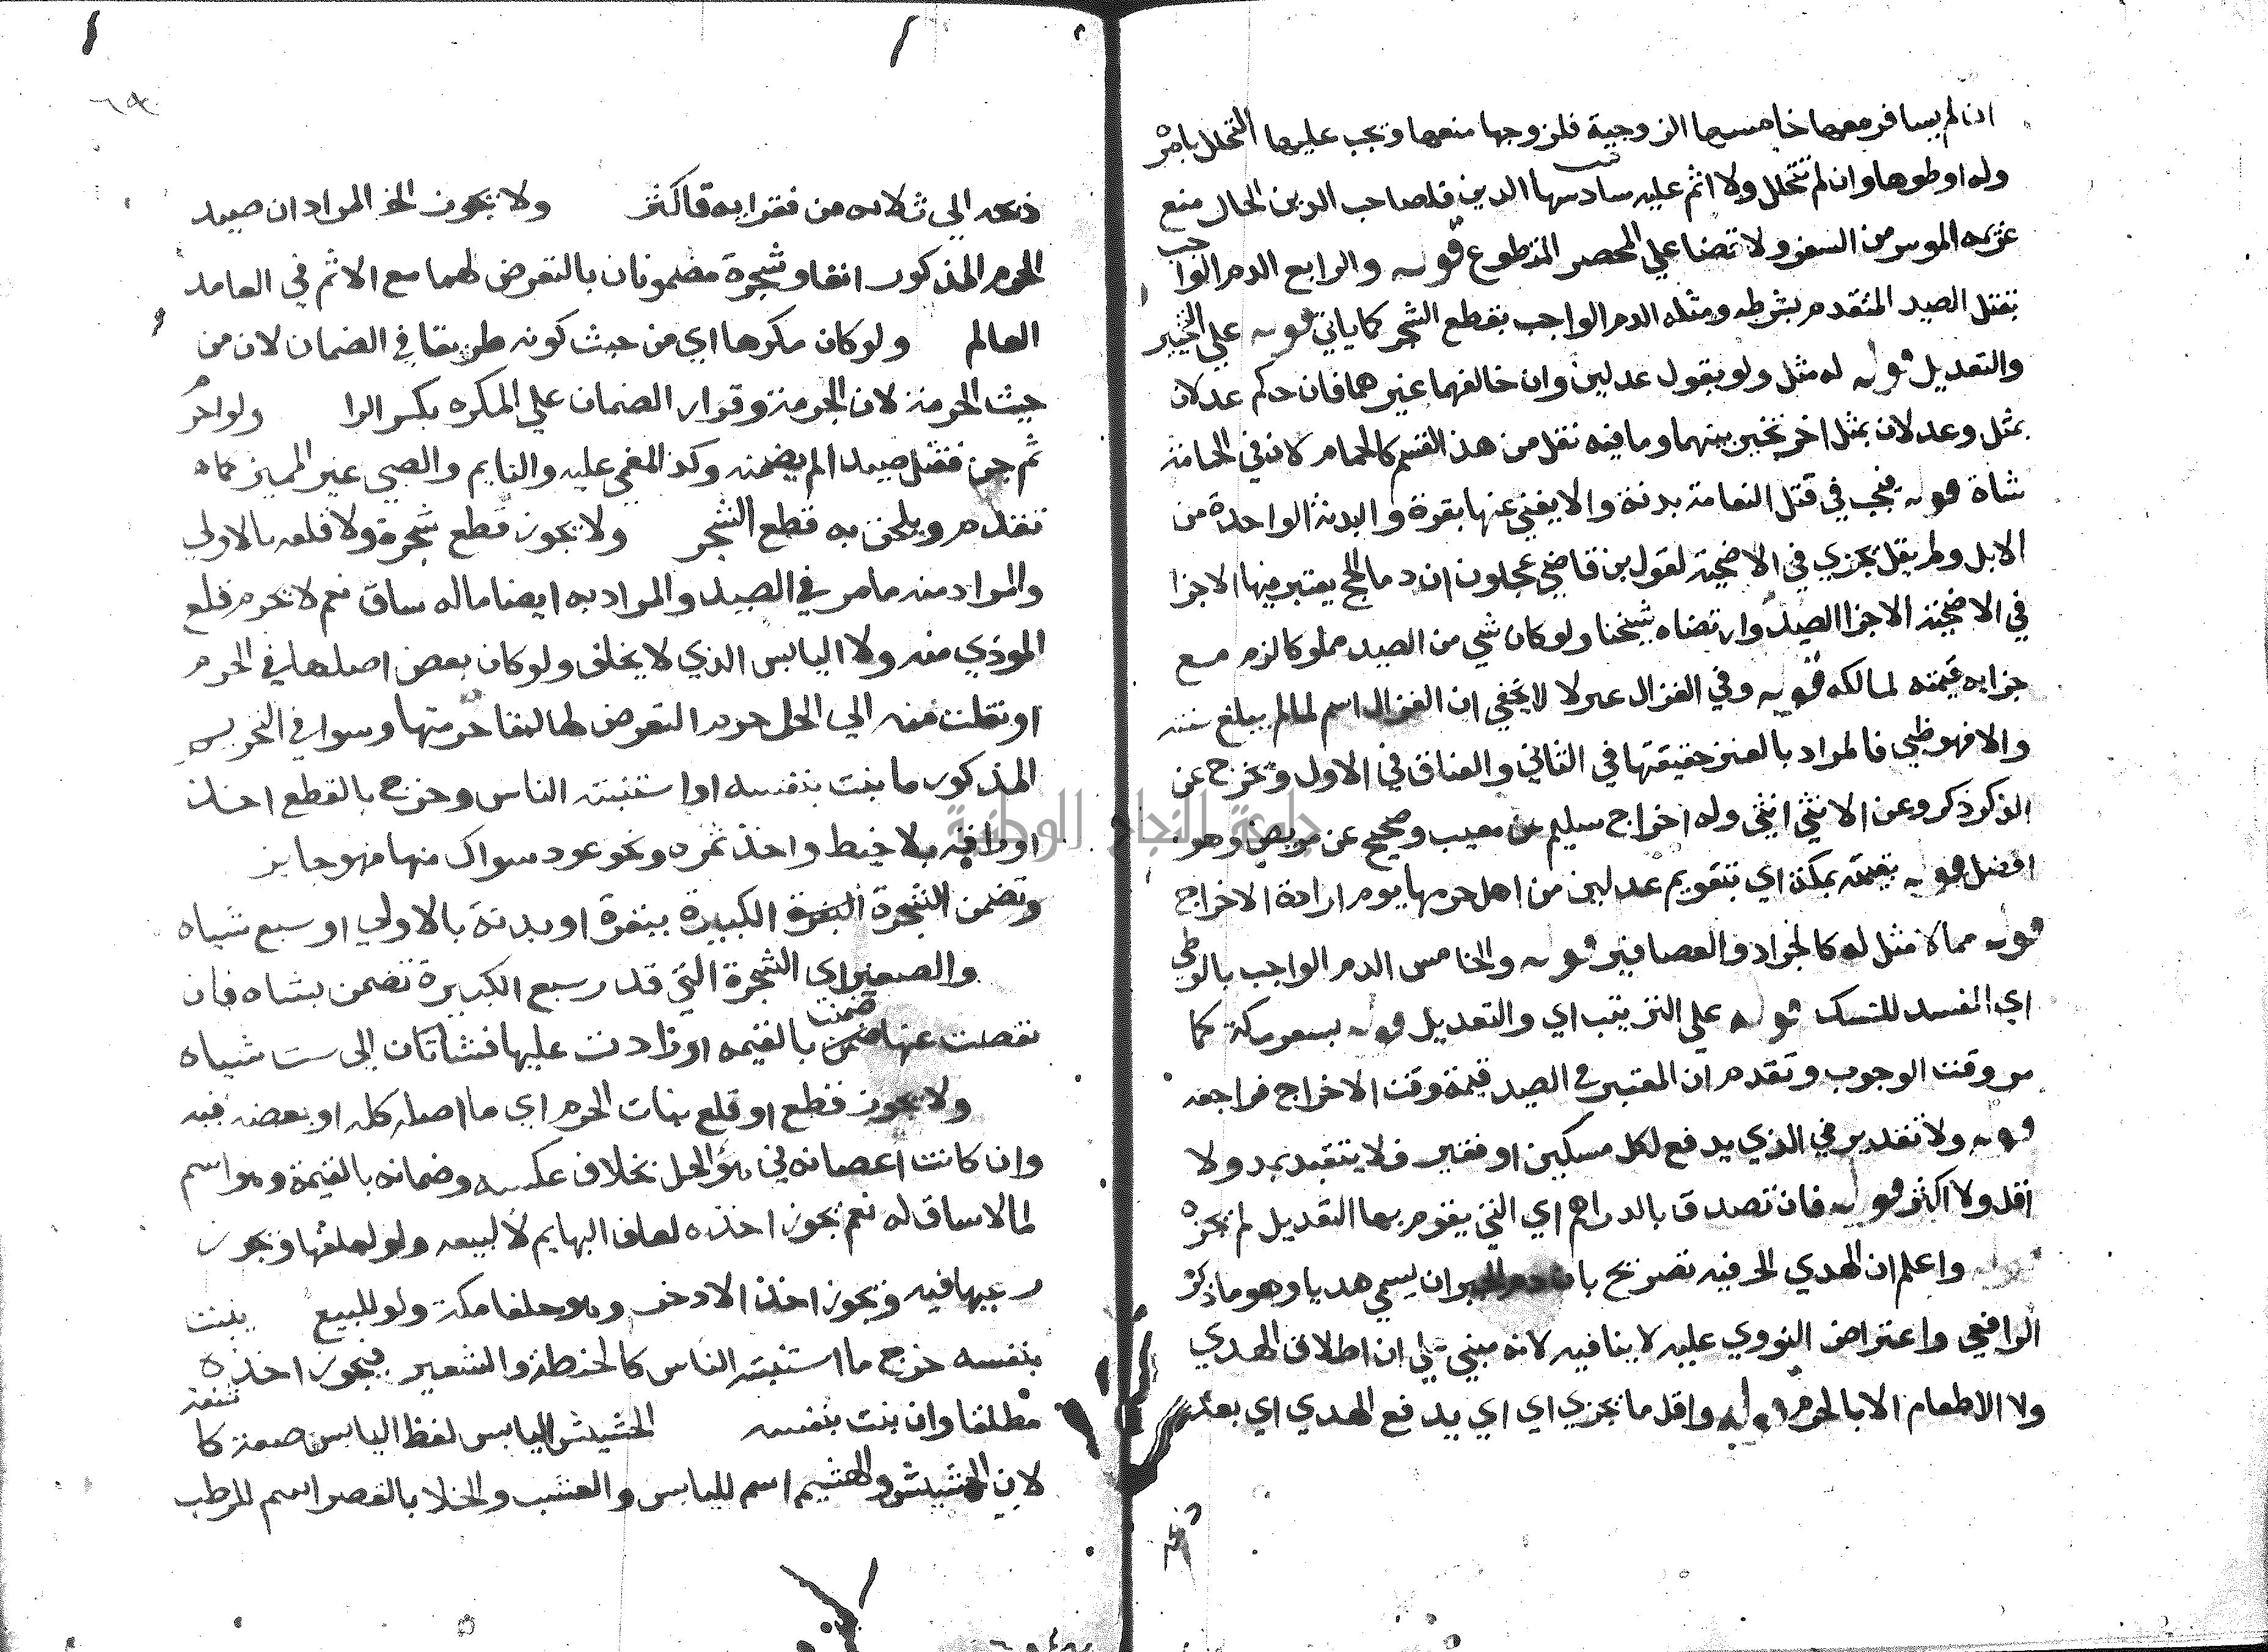 ان لم يسافر معها خامسها الزوجية فلزوجها منعها ويجب عليها التحلل بامره
وله اوطوها وان لم تتحلل ولا اثم عليه سادسها الدين فلصاحب الدين الحال منع
غريمه الموسر من السفر ولا قضا علي المحصر المتطوع قوله والرابع الدم الواجب
بقتل الصيد المتقدم بشرطه ومثله الدم الواجب بقطع الشجر كما ياتي قوله علي التخيير
والتعديل قوله له مثل ولو بقول عدلين وان خالفهما غيرهما فان حكم عدلان
بمثل وعدلان بمثل اخر تخير بينهما وما فيه نقل من هذا القسم كالحمام لان في الحمامة
شاة قوله فيجب في قتل النعامة بدنة والا يغني عنها بقرة والبدنة الواحدة من
الابل وطريقل تجزي في الاضحية لقول بن قاضي عجلون ان دما الحج يعتبر فيها الاجزا
في الاضحية الاجزا الصيد وارتضاه شيخنا ولو كان شي من الصيد مملوكا لزم مع
جزايه قيمته لمالكه قوله وفي الغزال عنز لا يخفي ان الغزال اسم لما لم يبلغ سنة
والا فهو ظبي فالمراد بالعنز حقيقتها في الثاني والعناق في الاول ويخرج عن
الذكر ذكر وعن الانثي انثي وله اخراج سليم عن معيب وصحيح عن مريض وهو
افضل قوله بقيمته بمكة اي بتقويم عدلين من اهل حرمها يوم ارادة الاخراج
قوله مما لا مثل له كالجراد والعصافير قوله والخامس الدم الواجب بالوطي
اي المفسد للنسك قوله علي الترتيب اي والتعديل قوله بسعر مكة كما
مر وقت الوجوب وتقدم ان المعتبر في الصيد قيمة وقت الاخراج فراجعه
قوله ولا تقدير في الذي يدفع لكل مسكين او فقير فلا يتقيد بمد ولا
اقل ولا اكثر قوله فان تصدق بالدراهم اي التي يقوم بها التعديل لم يجزه
قوله واعلم ان الهدي الخ فيه تصريح بان دم الجبران يسمي هديا وهو ما ذكره
الرافعي واعتراض النووي عليه لا ينافيه لانه مبني علي ان اطلاق الهدي
ولا الاطعام الا بالحرم قوله واقل ما يجزي اي اي يدفع الهدي اي بعد
ذبحه الي ثلاثه من فقرايه فاكثر ولا يجوز الخ المراد ان صيد
الحرم المذكور انفا وشجرة مضمونان بالتعرض لهما مع الاثم في العامد
العالم ولو كان مكرها اي من حيث كونه طريقا في الضمان لان من
حيث الحرمة لان الحرمة وقرار الضمان علي المكره بكسر الرا ولو احرم
ثم جن فقتل صيدا لم يضمنه وكذ المغمي عليه والنايم والصبي غير المميز كما
تقدم ويلحق به قطع الشجر ولا يجوز قطع شجرة ولا قلعه بالاولي
والمراد منه ما مر في الصيد والمراد به ايضا ماله ساق نعم لا يحرم قلع
الموذي منه ولا اليابس الذي لا يخلف ولو كان بعض اصلها في الحرم
او نقلت منه الي الحل حرم التعرض لها لبقا حرمتها وسوا في التحريم
المذكور ما ينبت بنفسه او استنبته الناس وخرج بالقطع اخذ
اوراقه بلا خبط واخذ ثمره ونحو عود سواك منها فهو جايز
وتضمن الشجرة البقرة الكبيرة ببقرة او بدنة بالاولي او سبع شياه
والصغير اي الشجرة التي قدر سبع الكبيرة تضمن بشاه فان
نقصت عنها ضمن ضمنت بالقيمه او زادت عليها فشاتان الي ست شياه
ولا يجوز قطع او قلع نبات الحرم اي ما اصله كله او بعضه فيه
وان كانت اغصانه في هوا الحل بخلاف عكسه وضمانه بالقيمة وهو اسم
لما لا ساق له نعم يجوز اخذه لعلف البهايم لا لبيعه ولو لعلفها ويجوز
رعيها فيه ويجوز اخذ الاذخر وهو حلفا مكة ولو للبيع ينبت
بنفسه خرج ما استنبته الناس كالحنطة والشعير فيجوز اخذه
مطلقا وان بنت بنفسه الحشيش اليابس لفظ اليابس صفة كا شفة
لان الحشيش والهشيم اسم لليابس والعشب والخلا بالقصر اسم للرطب
جامعة النجاح الوطنية